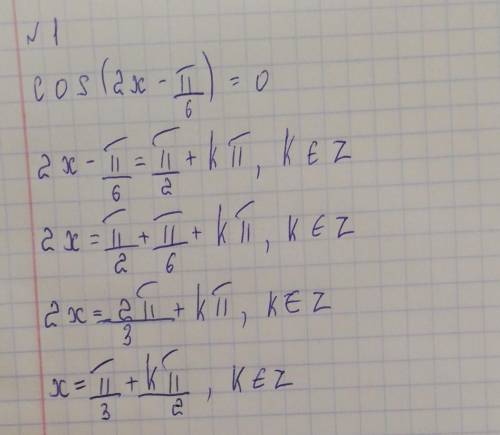 №1
cos(2x - π/6) = 0
2x - π/6 = π/2 + kπ, k ∈ Z
2x = π/2 + π/6 + kπ, k ∈ Z
2x = 2π/3 + kπ, k ∈ Z
x = π/3 + kπ/2, k ∈ Z